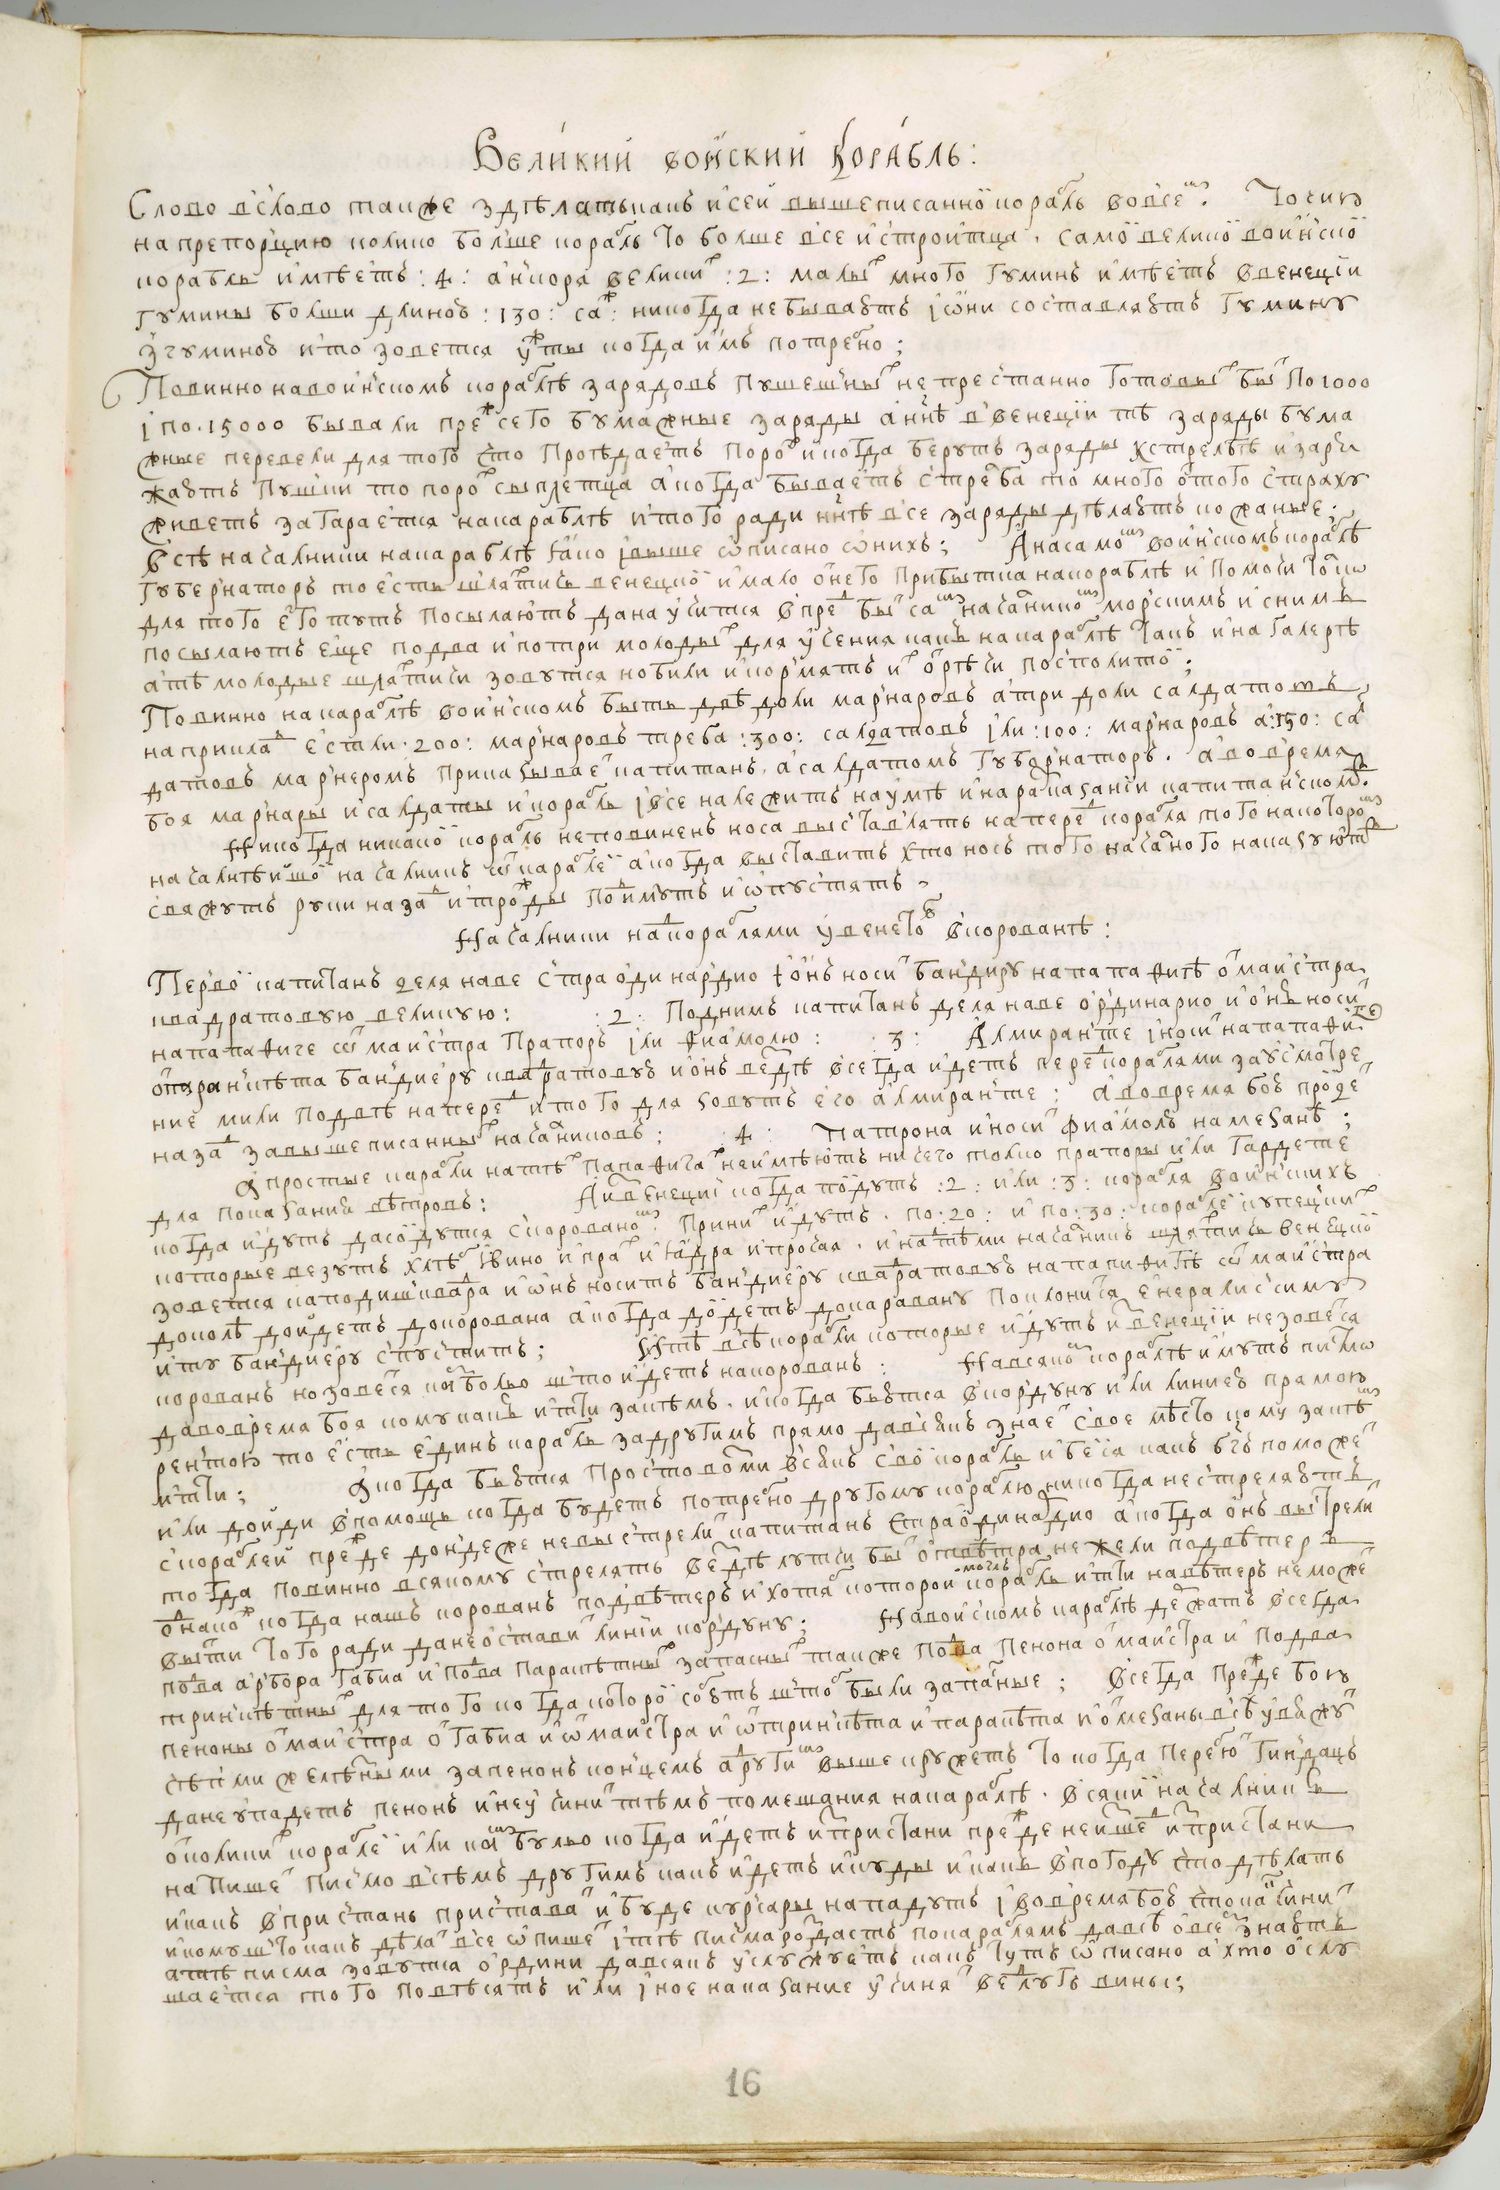 Вели́кий вои́нский Кора́бль:
Слово в слово такѫже здѣлатькакъ и сей вышеписанно́й корабль во всем. Точию
на препорцию колико болше корабль то болше все и строитца. самой великой воинской
корабль имѣетъ :4: анкора великих :2: малых много гуминъ имѣетъ в венецїи
гумины болши длиною :130: саж: никогда не бываютъ ї ѡни составляютъ гумину
з гуминою и то зовется ужты когда имъ потребно;
Повинно на воинскомъ кораблѣ зарядовъ пушешных непрестанно готовых быт по 1000
ї по.15000 бывали преж сего бумажные заряды а ннѣ в венецїи тѣ заряды бума
жные перевели для того что проѣдаетъ порох и когда берутъ заряды к стрелбѣ и заря
жаютъ пушки то порох сыплетца а когда бываетъ стрелба то много ѿ того страху
живетъ загарается на караблѣ и того ради ннѣ все заряды дѣлаютъ кожаные;
Всѣ началники на караблѣ тако ї выше ѡписано ѡ нихъ; А на самом воинскомъ кораблѣ
губернаторъ то есть шляхтичь венецкой и мало ѿ него прибытка на кораблѣ и помочи толко
для того его тутъ посылаютъ да научится впред быт сам началником морскимъ и с нимъ
посылаютъ еще по два и по три молодых для учения какъ на караблѣ такъ и на галерѣ
а тѣ молодые шляхтичи зовутся нобили и кормятъ их ѿ рѣчи посполитой;
Повинно на караблѣ воинскомъ быть двѣ доли марнаровъ а три доли салдатовъ
наприклад естли .200: марнаровъ треба :300: салдатовъ їли :100: марнаровъ а :150: сал
датовъ марнеромъ приказывает капитанъ. а салдатомъ губернаторъ. а во время
боя марнары и салдаты и корабль ї все належитъ на умѣ и на раказанїи капитанском.
Никогда никакой корабль неповиненъ носа выставлять наперед корабля того на котором
началнѣйшой началникъ ѿ караблей а когда выставитъ хто носъ того началного наказуютъ
свяжутъ руки назад и трожды поимутъ и ѡпустятъ
Началники над кораблями у венетов в корованѣ:
Первой капитанъ деля наве страодинардио ї ѡнъ носит бандиру на папафигѣ ѿ маистра
квадратовую великую: 2: Под нимъ капитанъ деля наве ординарио и ѡнъ носит
на папафиге ѿ маистра прапоръ їли фиамолю: 3: Алмиранте ї носит на папафиге
ѿ транкѣта бандиеру квадратовую и ѡнъ вездѣ всегда идетъ перед кораблями за усмотре
ние мили по двѣ наперед и того для зовутъ его алмиранте; а во время бою пройдет
назад за вышеписанных началниковъ; 4: Патрона и носит фиамолю на мезанѣ;
А простые карабли на тѣх папафигах неимѣютъ ничего толко прапоры или гардете
для показания вѣтровъ: А из венецїи когда пойдутъ :2: или :3: корабля воинскихъ
когда идутъ да сойдутся с корованом. При них идутъ. по :20: и по :30: кораблей купецких
которые везутъ хлѣб ївино и прах и ядра и прочая. и над тѣми началникъ шляхтичь венецкой
зовется каподишквадра и ѡнъ носитъ бандиеру квадратовую на папифигѣ ѿ маистра
доколѣ дойдетъ до корована а когда дойдетъ до каравану поклонится енералиссиму
и ту бандиеру спуститъ; И тѣ всѣ корабли которые идутъ из венецїи не зовется
корованъ но зовется конволью што идетъ на корованъ: На всяком кораблѣ имутъ писмо
да во время боя кому какъ итти за кѣмъ. и когда бьются в кордуну или линиею прамою
рентою то есть единъ корабль за другимъ прямо да всякъ знает свое мѣсто кому за кѣм
итти; А когда бьются просто вами всякъ свой корабль и бется какъ бгъ поможет
или дойди в помощь когда будетъ потребно другому кораблю никогда не стреляютъ
с кораблей прежде дондеже не выстрелит капитанъ страодинардио а когда ѡнъ выстрелит
тогда повинно всякому стрелять вездѣ лутчи быт ѿ вѣтра нежели под вѣтеръ
однакож когда нашъ корованъ под вѣтеръ и хотя которой могъ корабль итти на вѣтеръ не может
вытти того ради да не оставит линїи кордуну; На воинскомъ караблѣ держатъ всегда
по два арбора габиа и по два паракѣтных запасных также по два пенона ѿ маистра и по два
тринкѣтных для того когда которой собьютъ штоб были запасные; Всегда прежде бою
пеноны ѿ маистра ѿ габиа и ѿ маистра и ѿ тринкѣта и паракѣта и ѿ мезаны всѣ увяжут
чѣпми желѣзными за пенонъ концемъ а другим выше кружетъ то когда перебют гиндацъ
да не упадетъ пенонъ и не учинит тѣмъ помешания на караблѣ. Всякїй началникъ
ѿ коликих кораблей или конвулью когда идетъ ис пристани прежде неизшед ис пристани
напишет писмо всѣмъ другимъ какъ идетъ и куды и какъ в погоду что дѣлать
и какъ в пристань пристават и буде курсары нападутъ ї во время бою что какъ чинит
и кому што какъ дѣлат все ѡпишет ї тѣ писма роздастъ по караблямъ да всѣ о всем знаютъ
а тѣ писма зовутся ордини да всякъ услужуетъ какъ тутъ ѡписано а хто ослу
шается того повѣсятъ или їное наказание учинят ведлугъ вины;
16